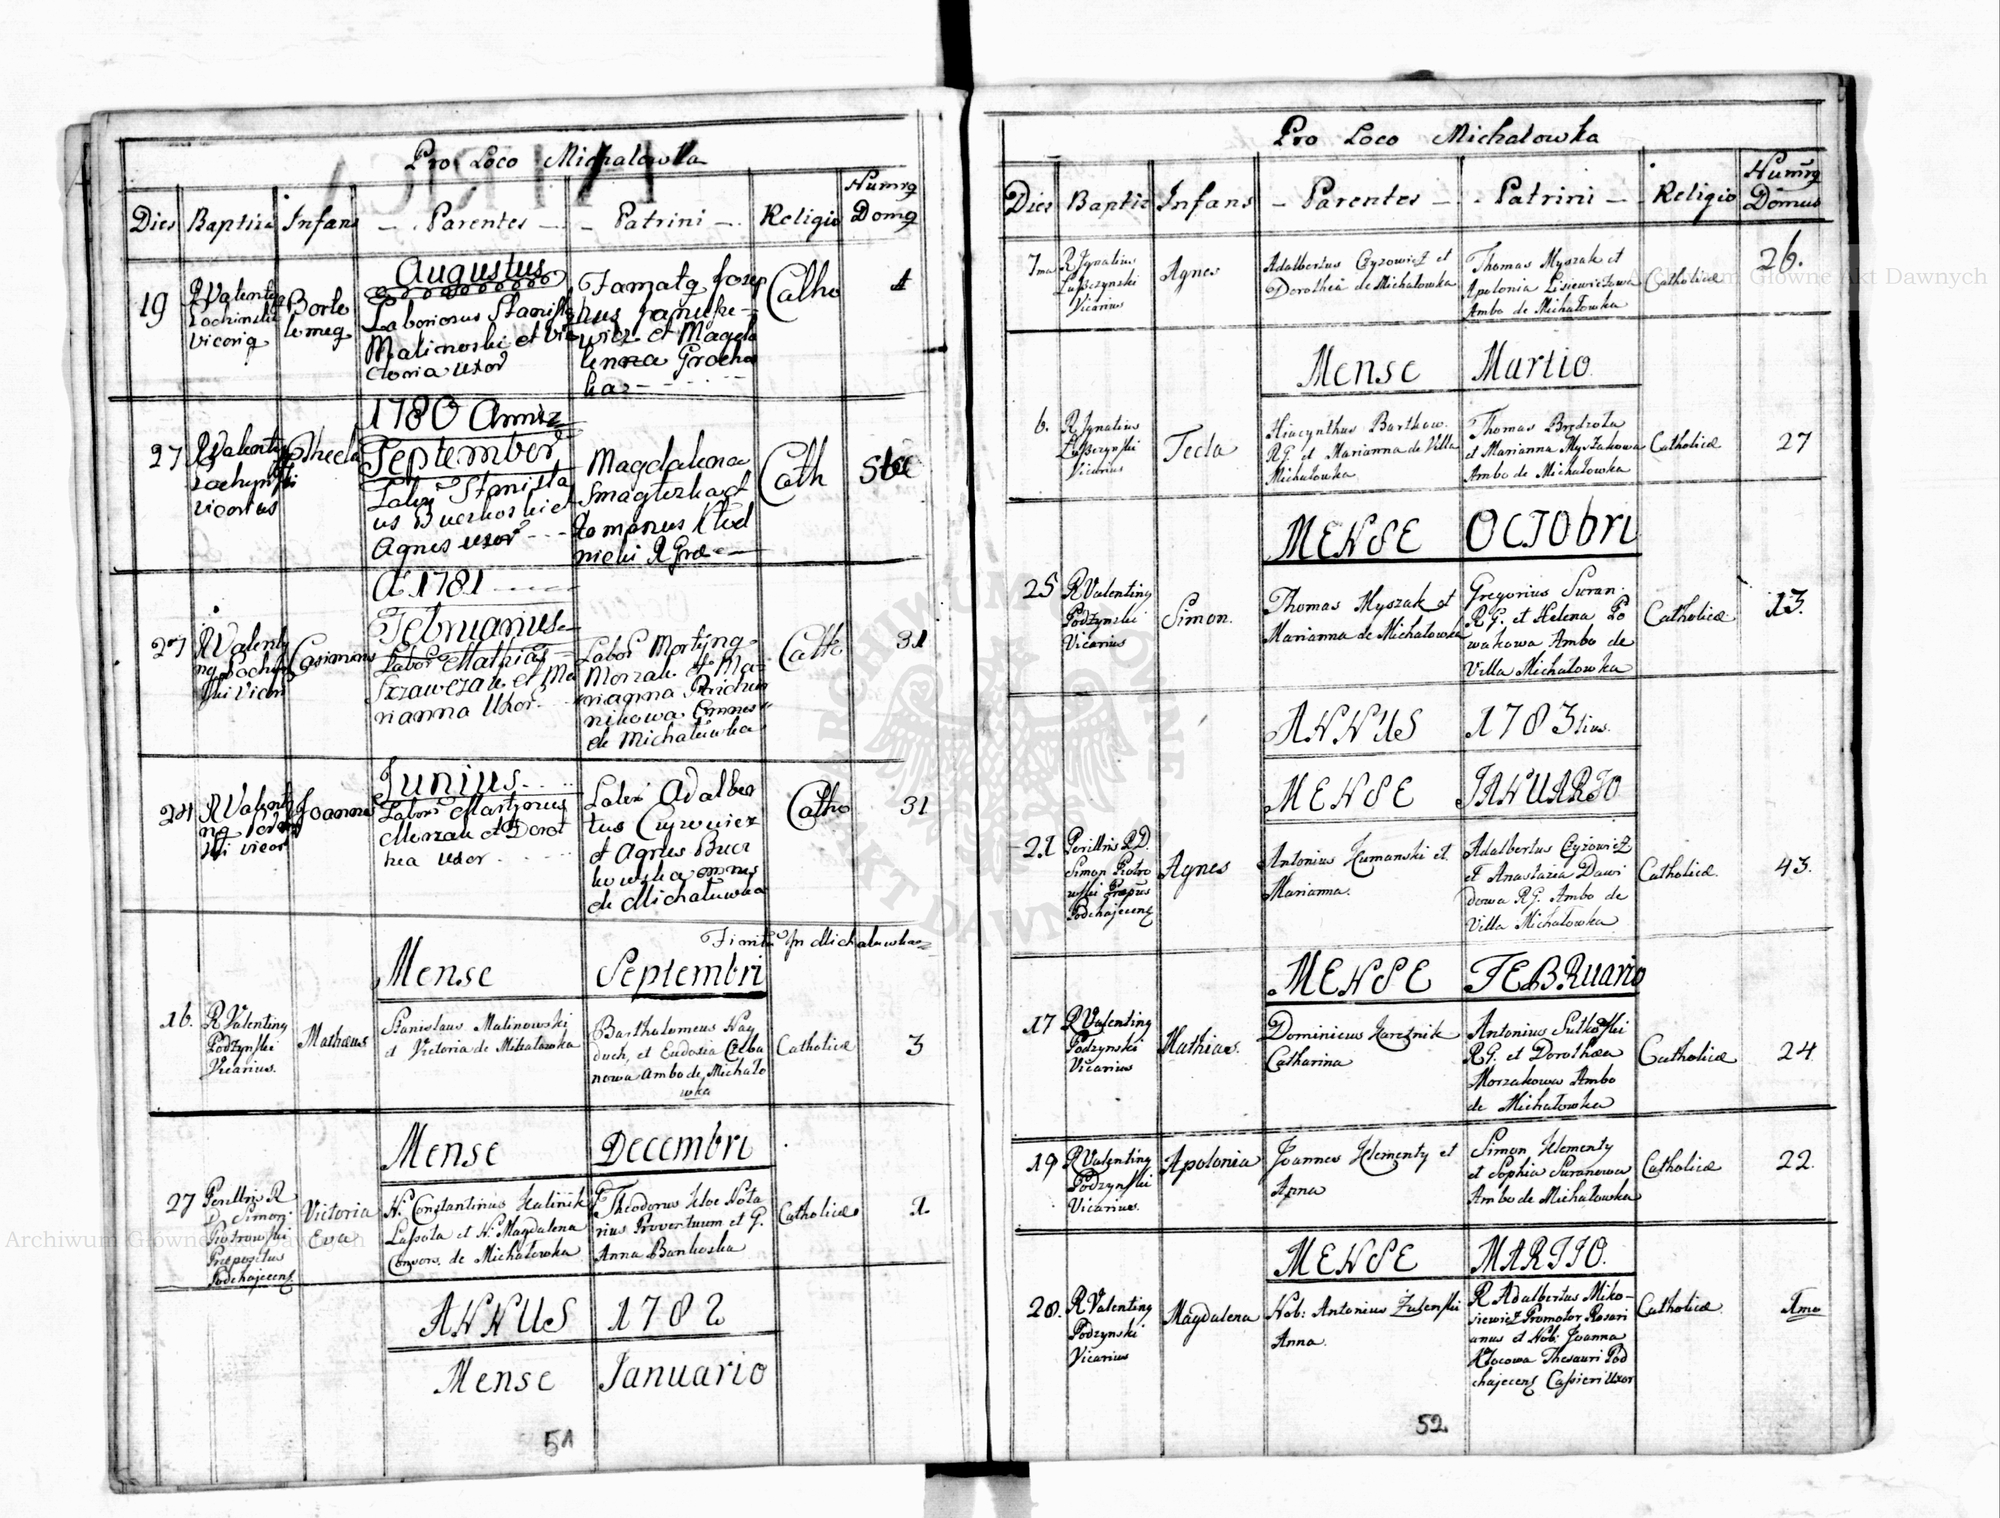 Pro Loco Michalowka
Dies Baptiza Infans Parentes Patrini Religio Numrq Domq
Augustus
19
R Valentq
Lochinski
Vicariq
Barto
lomeq
Laboriosus Stanisla
Malinoski et Vi
ctoria uxor
Famatq Josep
hus Janusze
wicz et Magda
lenna Grocho
ka
Catho
1
1780 Annis
September
27
R Valentq
Lochynski
vicarius
Thecla
Labor Stanisla
us Buczkoski et
Agnes uxor
Magdalena
Romanus Kłod
nicki R Græ
Cath
A 1781
Februarius
27
R Valenti
nq Lochyn
ski Vicari
Casimirus
Labor Mathias
Szzawczak et Ma
rianna Uxor
Labor Martinq
Morzak et Ma
rianna
nikowa Omnes
de Michałuwka
Catho
31
Junius
24
R Valenti
nq
ski vicar
Joannes
Labor Martinus
Morzak et Dorot
hea uxor
Labor Adalber
tus Cuzowicz
et Agnes Bucz
kowska omnes
de Michałuwka
Catho
31
In Michaluwka
Mense Septembri
16.
R Valentinq
Podzynski
Vicarius.
Mathæus
Stanislaus Malinowski
et Victoria de Michałowka
Bartholomeus Hay
duch, et Eudosia Czeba
nowa Ambo de Michało
wka
Catholicæ
3
Mense Decembri
27
Perillris R
D. Simon
Piotrowski
Præpositus
Podhajecens
Victoria
Eva
N. Constantinus Kalinik
Lassota et N. Magdalena
Consors. de Michałowka
G Theodorus Kloc Nota
rius Proventuum et G.
Anna Bankoska
Catholicæ
1.
ANNUS 1782
Mense Januario
51
Pro Loco Michalowka
Dies Baptiz Infans Parentes Patrini Religio Numrq Domus
7ma
R Ignatius
Łuszczynski
Vicarius
Agnes
Adalbertus Czyzowicz et
Dorothea de Michałowka
Thomas Myszak et
Apolonia Lisiewiczowa
Ambo de Michałowka
Catholicæ
26.
Mense Martio
6.
R Ignatius
Łuszczynski
Vicarius
Tecla
Hiacynthus Bartkow.
R.G. et Marianna de Villa
Michałowka.
Thomas Brdzola
et Marianna Myszakowa
Ambo de Michałowka
Catholicæ
27
MENSE OCTObri
25
R Valentinq
Podzynski
Vicarius
Simon.
Thomas Myszak et
Marianna de Michałowka
Gregorius Suran.
R.G. et Helena Po
wakowa Ambo de
Villa Michałowka
Catholicæ
13.
ANNUS 1783tius.
MENSE JANUARIO
21
Perillris R.D.
Simon Piotro
wski Præpus
Podhajecens
Agnes
Antonius Humanski et
Marianna.
Adalbertus Czyzowicz
et Anastazia Dawi
dowa R.G. Ambo de
Villa Michałowka
Catholicæ.
43.
MENSE FEBRuario
17
R Valentinq
Podzynski
Vicarius
Mathias.
Dominicus Karcznik
Catharina
Antonius Sulkowski
R.G. et Dorothæa
Morzakowa Ambo
de Michałowka
Catholicæ
24.
19
R Valentinq
Podzynski
Vicarius.
Apolonia
Joannes Klementy et
Anna
Simon Klementy
et Sophia Suranowa
Ambo de Michałowka
Catholicæ
22.
MENSE MARTIO.
28.
R Valentinq
Podzynski
Vicarius
Magdalena
Nob: Antonius Zalenski
Anna.
R Adalbertus Miko-
siewicz Promotor Rosari
anus et Nob: Joanna
Klocowa Thesauri Pod
hajecens Cassieri Uxor
Catholicæ.
1ma
52
Archiwum Główne Akt Dawnych
Archiwum Główne Akt Dawnych
ARCHIWUM GŁÓWNE AKT DAWNYCH